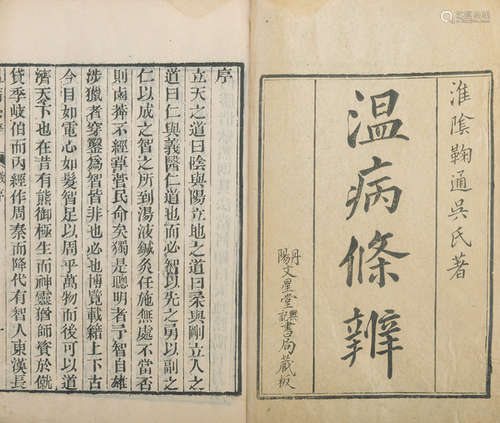 淮陰鞠通吳氏著
温病條辨
丹陽文星堂譔書局藏板
序
立天之道曰陰與陽立地之道曰柔與剛立人之
道曰仁與義醫仁道也而必智以先之勇以副之
仁以成之智之所到湯液鍼灸任施無處不當否
則鹵莽不經草菅民命矣獨是聰明者予智自雄
涉獵者穿鑿爲智皆非也必也博覽載籍上下古
今目如電心如髮智足以周乎萬物而後可以道
濟天下也在昔有熊御極生而神靈猶師資於僦
貸季岐伯而內經作周秦而降代有智人東漢長